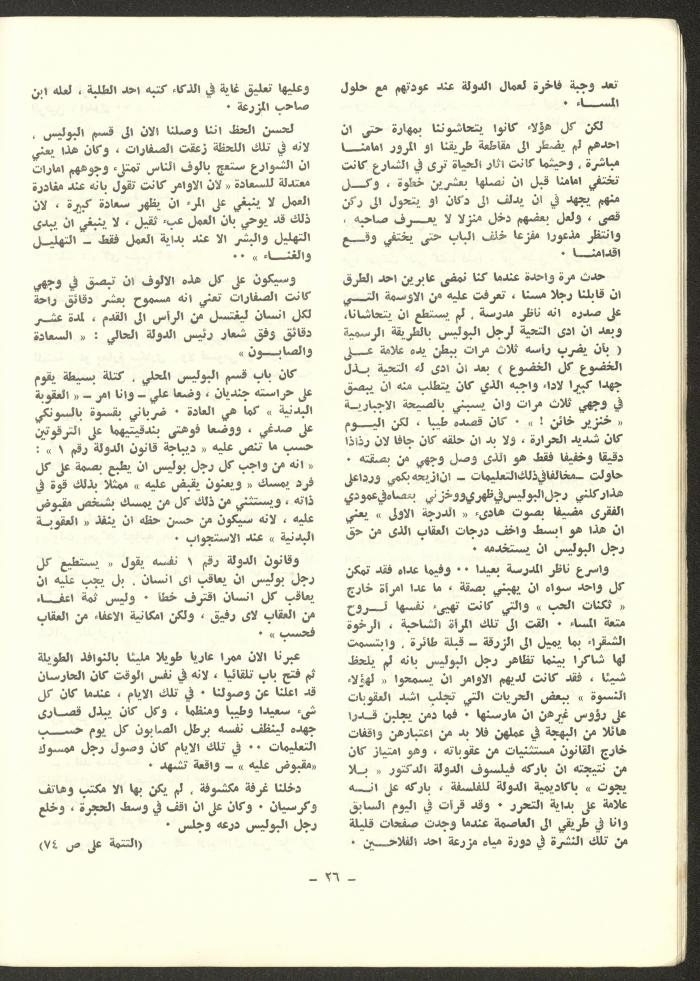 تعد وجبة فاخرة لعمال الدولة عند عودتهم مع حلول
المساء ٠
لكن كل هؤلاء كانوا يتحاشوننا بمهارة حتى ان
احدهم لم يضطر الى مقاطعة طريقنا او المرور امامنا
مباشرة ، وحيثما كانت اثار الحياة ترى في الشارع كانت
تختفي امامنا قبل ان نصلها بعشرين خطوة ، وكل
منهم يجهد في ان يدلف الى دكان او يتحول الى ركن
قصى ، ولعل بعضهم دخل منزلا لا يعرف صاحبه ،
وانتظر مذعورا مفزعا خلف الباب حتى يختفي وقع
اقدامنا ٠
حدث مرة واحدة عندما كنا نمضى عابرين احد الطرق
ان قابلنا رجلا مسنا ، تعرفت عليه من الاوسمة التي
على صدره انه ناظر مدرسة ، لم يستطع ان يتحاشانا،
وبعد ان ادى التحية لرجل البوليس بالطريقة الرسمية
( بأن يضرب رأسه ثلاث مرات ببطن يده علامة على
الخضوع كل الخضوع ) بعد ان ادى له التحية بذل
جهدا كبيرا لاداء واجبه الذي كان يتطلب منه ان يبصق
في وجهي ثلاث مرات وان يسبني بالصيحة الاجبارية
« خنزير خائن ! » ٠ كان قصده طيبا ، لكن اليوم
كان شديد الحرارة ، ولا بد ان حلقه كان جافا لان رذاذا
دقيقا وخفيفا فقط هو الذى وصل وجهي من بصقته ٠
حاولت ـ مخالفا في ذلك التعليمات ـ ان ازيحه بكمي وردا على
هذا ركلني رجل البوليس في ظهري ووخزني بعصاه في عمودي
الفقرى مضيفا بصوت هادىء « الدرجة الاولى » يعني
ان هذا هو ابسط واخف درجات العقاب الذى من حق
رجل البوليس ان يستخدمه ٠
واسرع ناظر المدرسة بعيدا ٠٠ وفيما عداه فقد تمكن
كل واحد سواه ان يهبني بصقة ، ما عدا امرأة خارج
« ثكنات الحب » والتي كانت تهيىء نفسها لروح
متعة المساء ٠ القت الى تلك المرأة الشاحبة ، الرخوة
الشقراء بما يميل الى الزرقة ـ قبلة طائرة ، وابتسمت
لها شاكرا بينما تظاهر رجل البوليس بانه لم يلحظ
شيئا ، فقد كانت لديهم الاوامر ان يسمحوا « لهؤلاء
النسوة » ببعض الحريات التي تجلب اشد العقوبات
على رؤوس غيرهن ان مارسنها ٠ فما دمن يجلبن قدرا
هائلا من البهجة في عملهن فلا بد من اعتبارهن واقفات
خارج القانون مستثنيات من عقوباته ، وهو امتياز كان
من نتيجته ان باركه فيلسوف الدولة الدكتور « بلا
يجوت » باكاديمية الدولة للفلسفة ، باركه على انه
علامة على بداية التحرر ٠ وقد قرأت في اليوم السابق
وانا في طريقي الى العاصمة عندما وجدت صفحات قليلة
من تلك النشرة في دورة مياه مزرعة احد الفلاحين ٠
وعليها تعليق غاية في الذكاء كتبه احد الطلبة ، لعله ابن
صاحب المزرعة ٠
لحسن الحظ اننا وصلنا الان الى قسم البوليس ،
لانه في تلك اللحظة زعقت الصفارات ، وكان هذا يعني
ان الشوارع ستعج بالوف الناس تمتلىء وجوههم امارات
معتدلة للسعادة « لان الاوامر كانت تقول بانه عند مغادرة
العمل لا ينبغي على المرء ان يظهر سعادة كبيرة ، لان
ذلك قد يوحي بان العمل عبء ثقيل ، لا ينبغي ان يبدى
التهليل والبشر الا عند بداية العمل فقط ـ التهليل
والغناء » ٠٠
وسيكون على كل هذه الالوف ان تبصق في وجهي
كانت الصفارات تعني انه مسموح بعشر دقائق راحة
لكل انسان ليغتسل من الرأس الى القدم ، لمدة عشر
دقائق وفق شعار رئيس الدولة الحالي : « السعادة
والصابون »
كان باب قسم البوليس المحلي ، كتلة بسيطة يقوم
على حراسته جنديان ، وضعا علي ـ وانا امر ـ « العقوبة
البدنية » كما هي العادة ٠ ضرباني بقسوة بالسونكي
على صدغي ، ووضعا فوهتى بندقيتيهما على الترقوتين
حسب ما تنص عليه « ديباجة قانون الدولة رقم ١ » :
« انه من واجب كل رجل بوليس ان يطبع بصمة على كل
فرد يمسك « ويعنون يقبض عليه » ممثلا بذلك قوة في
ذاته ، ويستثني من ذلك كل من يمسك بشخص مقبوض
عليه ، لانه سيكون من حسن حظه ان ينفذ « العقوبة
البدنية » عند الاستجواب ٠
وقانون الدولة رقم ١ نفسه يقول « يستطيع كل
رجل بوليس ان يعاقب اى انسان ، بل يجب عليه ان
يعاقب كل انسان اقترف خطأ ٠ وليس ثمة اعفاء
من العقاب لاى رفيق ، ولكن امكانية الاعفاء من العقاب
فحسب » ٠
عبرنا الان ممرا عاريا طويلا مليئا بالنوافذ الطويلة
ثم فتح باب تلقائيا ، لانه في نفس الوقت كان الحارسان
قد اعلنا عن وصولنا ٠ في تلك الايام ، عندما كان كل
شىء سعيدا وطيبا ومنظما ، وكل كان يبذل قصارى
جهده لينظف نفسه برطل الصابون كل يوم حسب
التعليمات ٠٠ في تلك الايام كان وصول رجل ممسوك
«مقبوض عليه » ـ واقعة تشهد ٠
دخلنا غرفة مكشوفة ، لم يكن بها الا مكتب وهاتف
وكرسيان ٠ وكان على ان اقف في وسط الحجرة ، وخلع
رجل البوليس درعه وجلس ٠
(التتمة على ص ٧٤)
ـ ٢٦ ـ